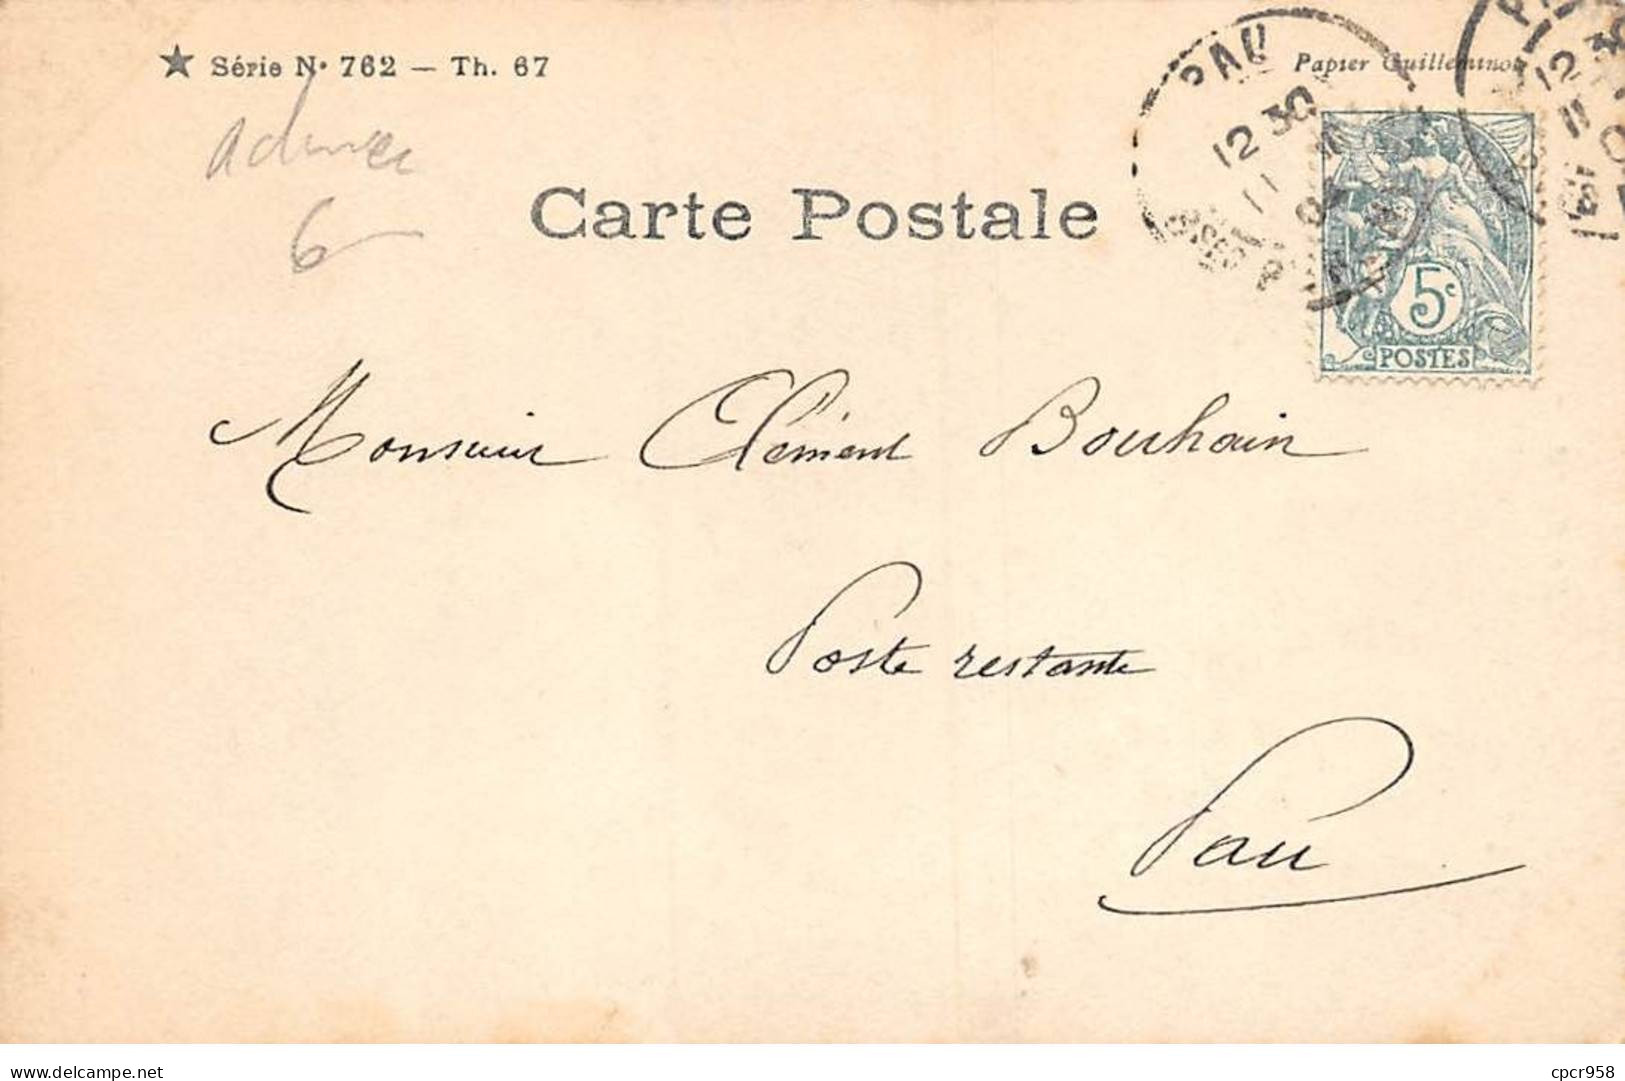 ★ Série N° 762 — Th. 67
Papier Guilleminot
PAU
12 30
11
12 30
11
6
Carte Postale
5c
POSTES
Monsieur Clément Bouhain
Poste restante
Pau
cpcr958